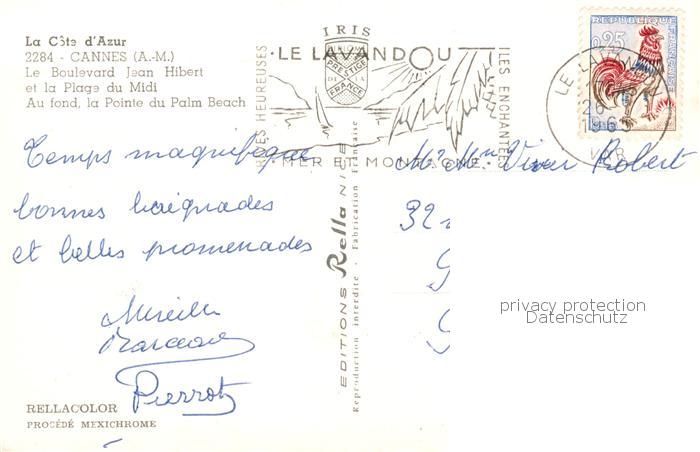 La Côte d'Azur
2284 - CANNES (A.-M.)
Le Boulevard Jean Hibert
et la Plage du Midi
Au fond, la Pointe du Palm Beach
Temps magnifique
bonnes baignades
et belles promenades
Mireille
Pierrot
RELLACOLOR
PROCÉDÉ MEXICHROME
IRIS
UNION
PRESTIGE
DE LA
FRANCE
EDITIONS Rella NICE
Reproduction interdite - Fabrication Française
·LE LAVANDOU
ILES ENCHANTÉES
·MER ET MONTAGNE·
0,25
REPUBLIQUE FRANÇAISE
LE LAVANDOU
26
1963
VAR
Mr Mme Vivier Robert
32
privacy protection
Datenschutz